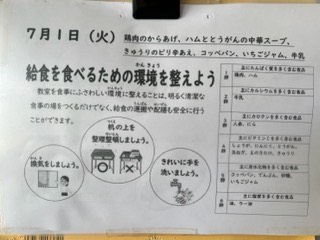 7月1日（火）
鶏肉のからあげ、ハムととうがんの中華スープ、
きゅうりのピリ辛あえ、コッペパン、いちごジャム、牛乳
給食を食べるための環境を整えよう
教室を食事にふさわしい環境に整えることは、明るく清潔な
食事の場をつくるだけでなく、給食の運搬や配膳も安全に行う
ことができます。
換気をしましょう。
机の上を
整理整頓しましょう。
きれいに手を
洗いましょう。
1群
主にたんぱく質を多く含む食品
鶏肉、ハム
2群
主にカルシウムを多く含む食品
牛乳
3群
主にカロテンを多く含む食品
人参、にら
4群
主にビタミンCを多く含む食品
しょうが、にんにく、とうがん、
5群
主に炭水化物を多く含む食品
コッペパン、でんぷん、砂糖、
いちごジャム
6群
主に脂質を多く含む食品
油、ラー油